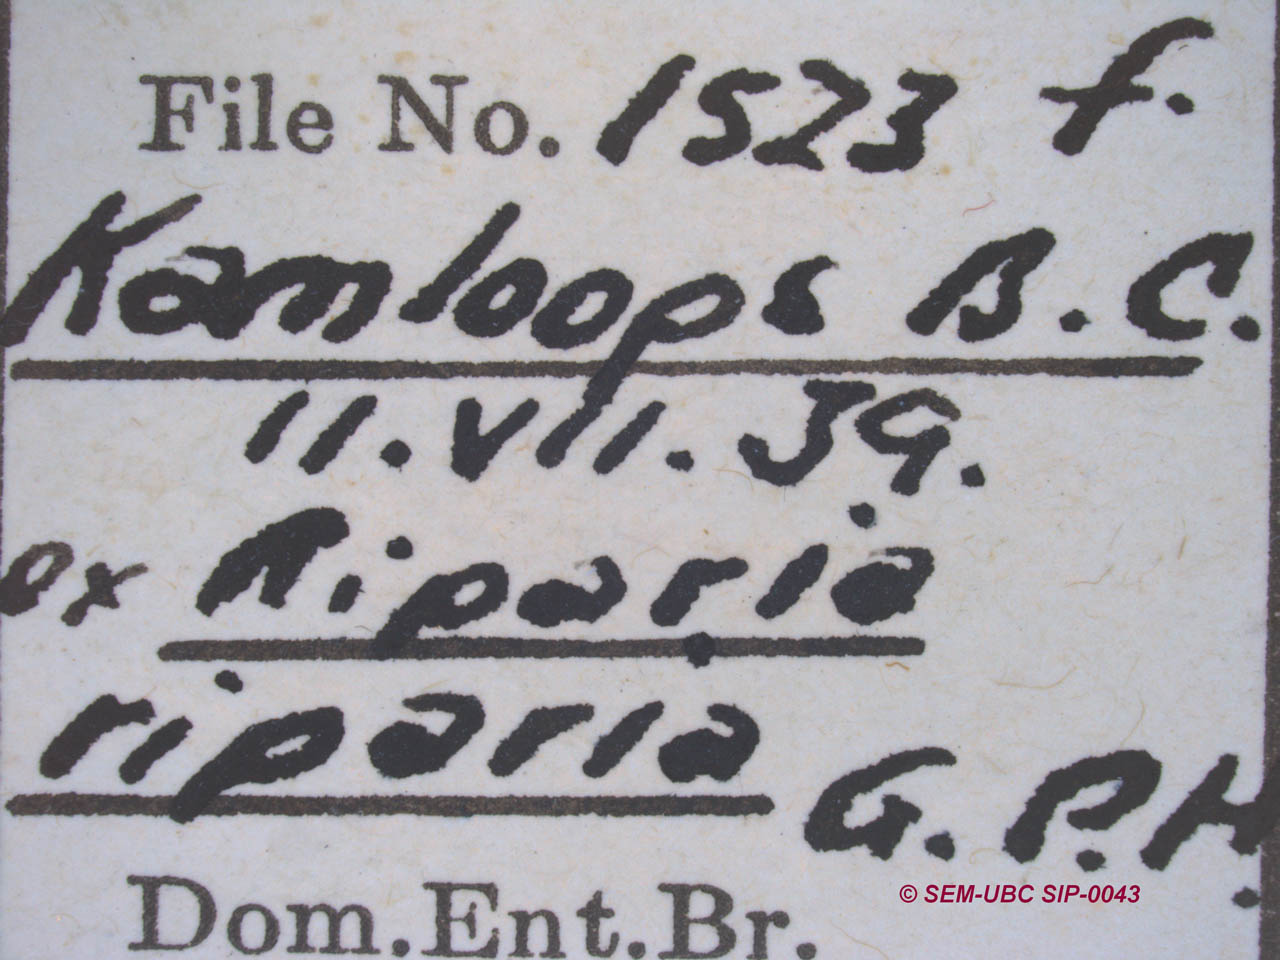 File No. 1523 f.
Kamloops B.C.
11.VII.39.
ex Riparia
riparia G.P.H.
© SEM-UBC SIP-0043
Dom.Ent.Br.